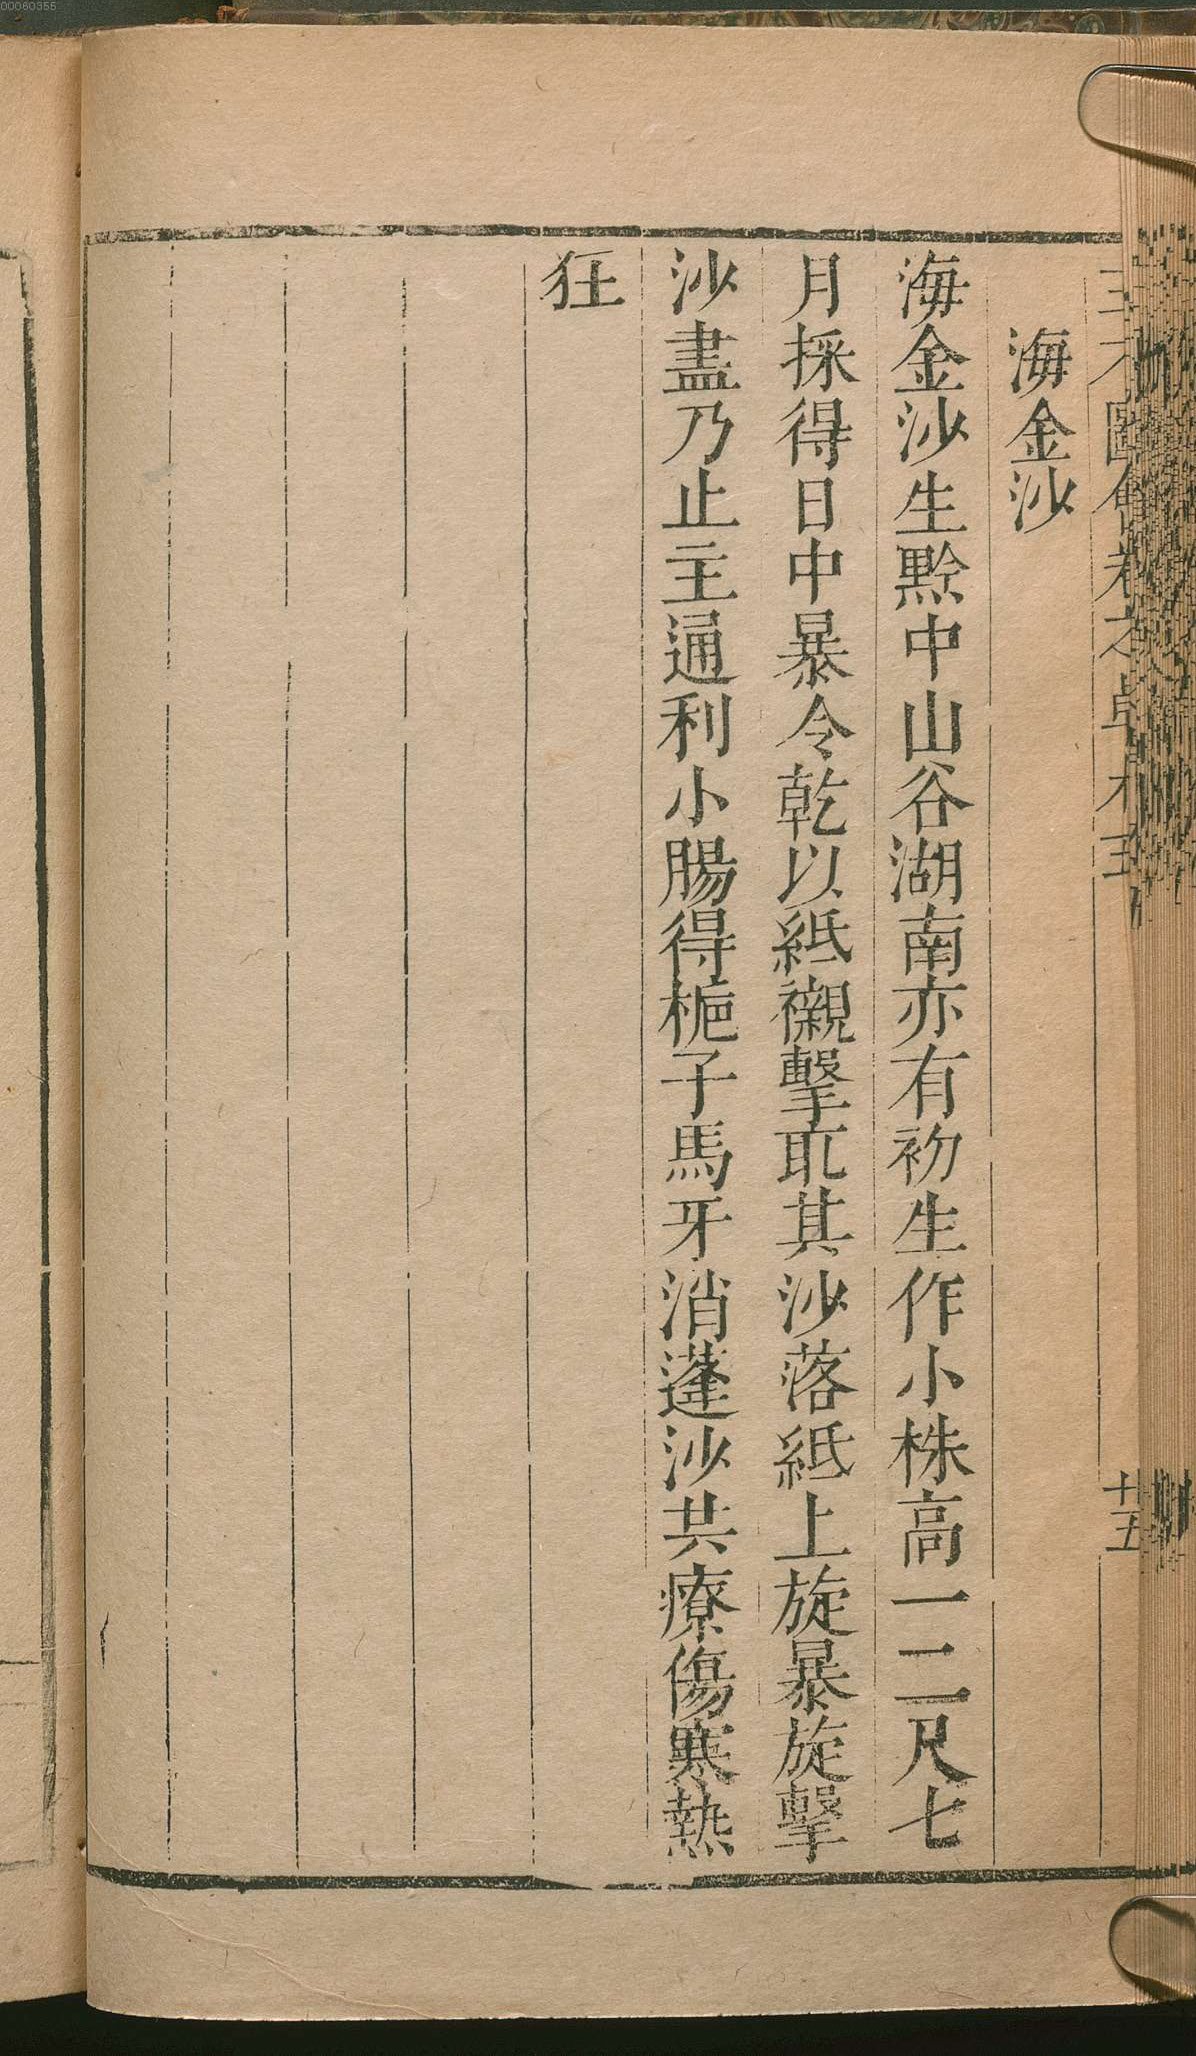 海金沙
海金沙生黔中山谷湖南亦有初生作小株高一二尺七
月採得日中暴令乾以紙襯擊取其沙落紙上旋暴旋擊
沙盡乃止主通利小腸得梔子馬牙消蓬沙共療傷寒熱
狂
十五
00060355